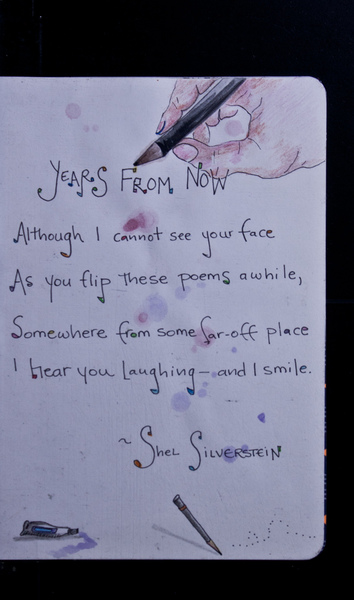 YEARS FROM NOW
Although I cannot see your face
As you flip these poems awhile,
Somewhere from some far-off place
I hear you laughing—and I smile.
~ SHEL SILVERSTEIN